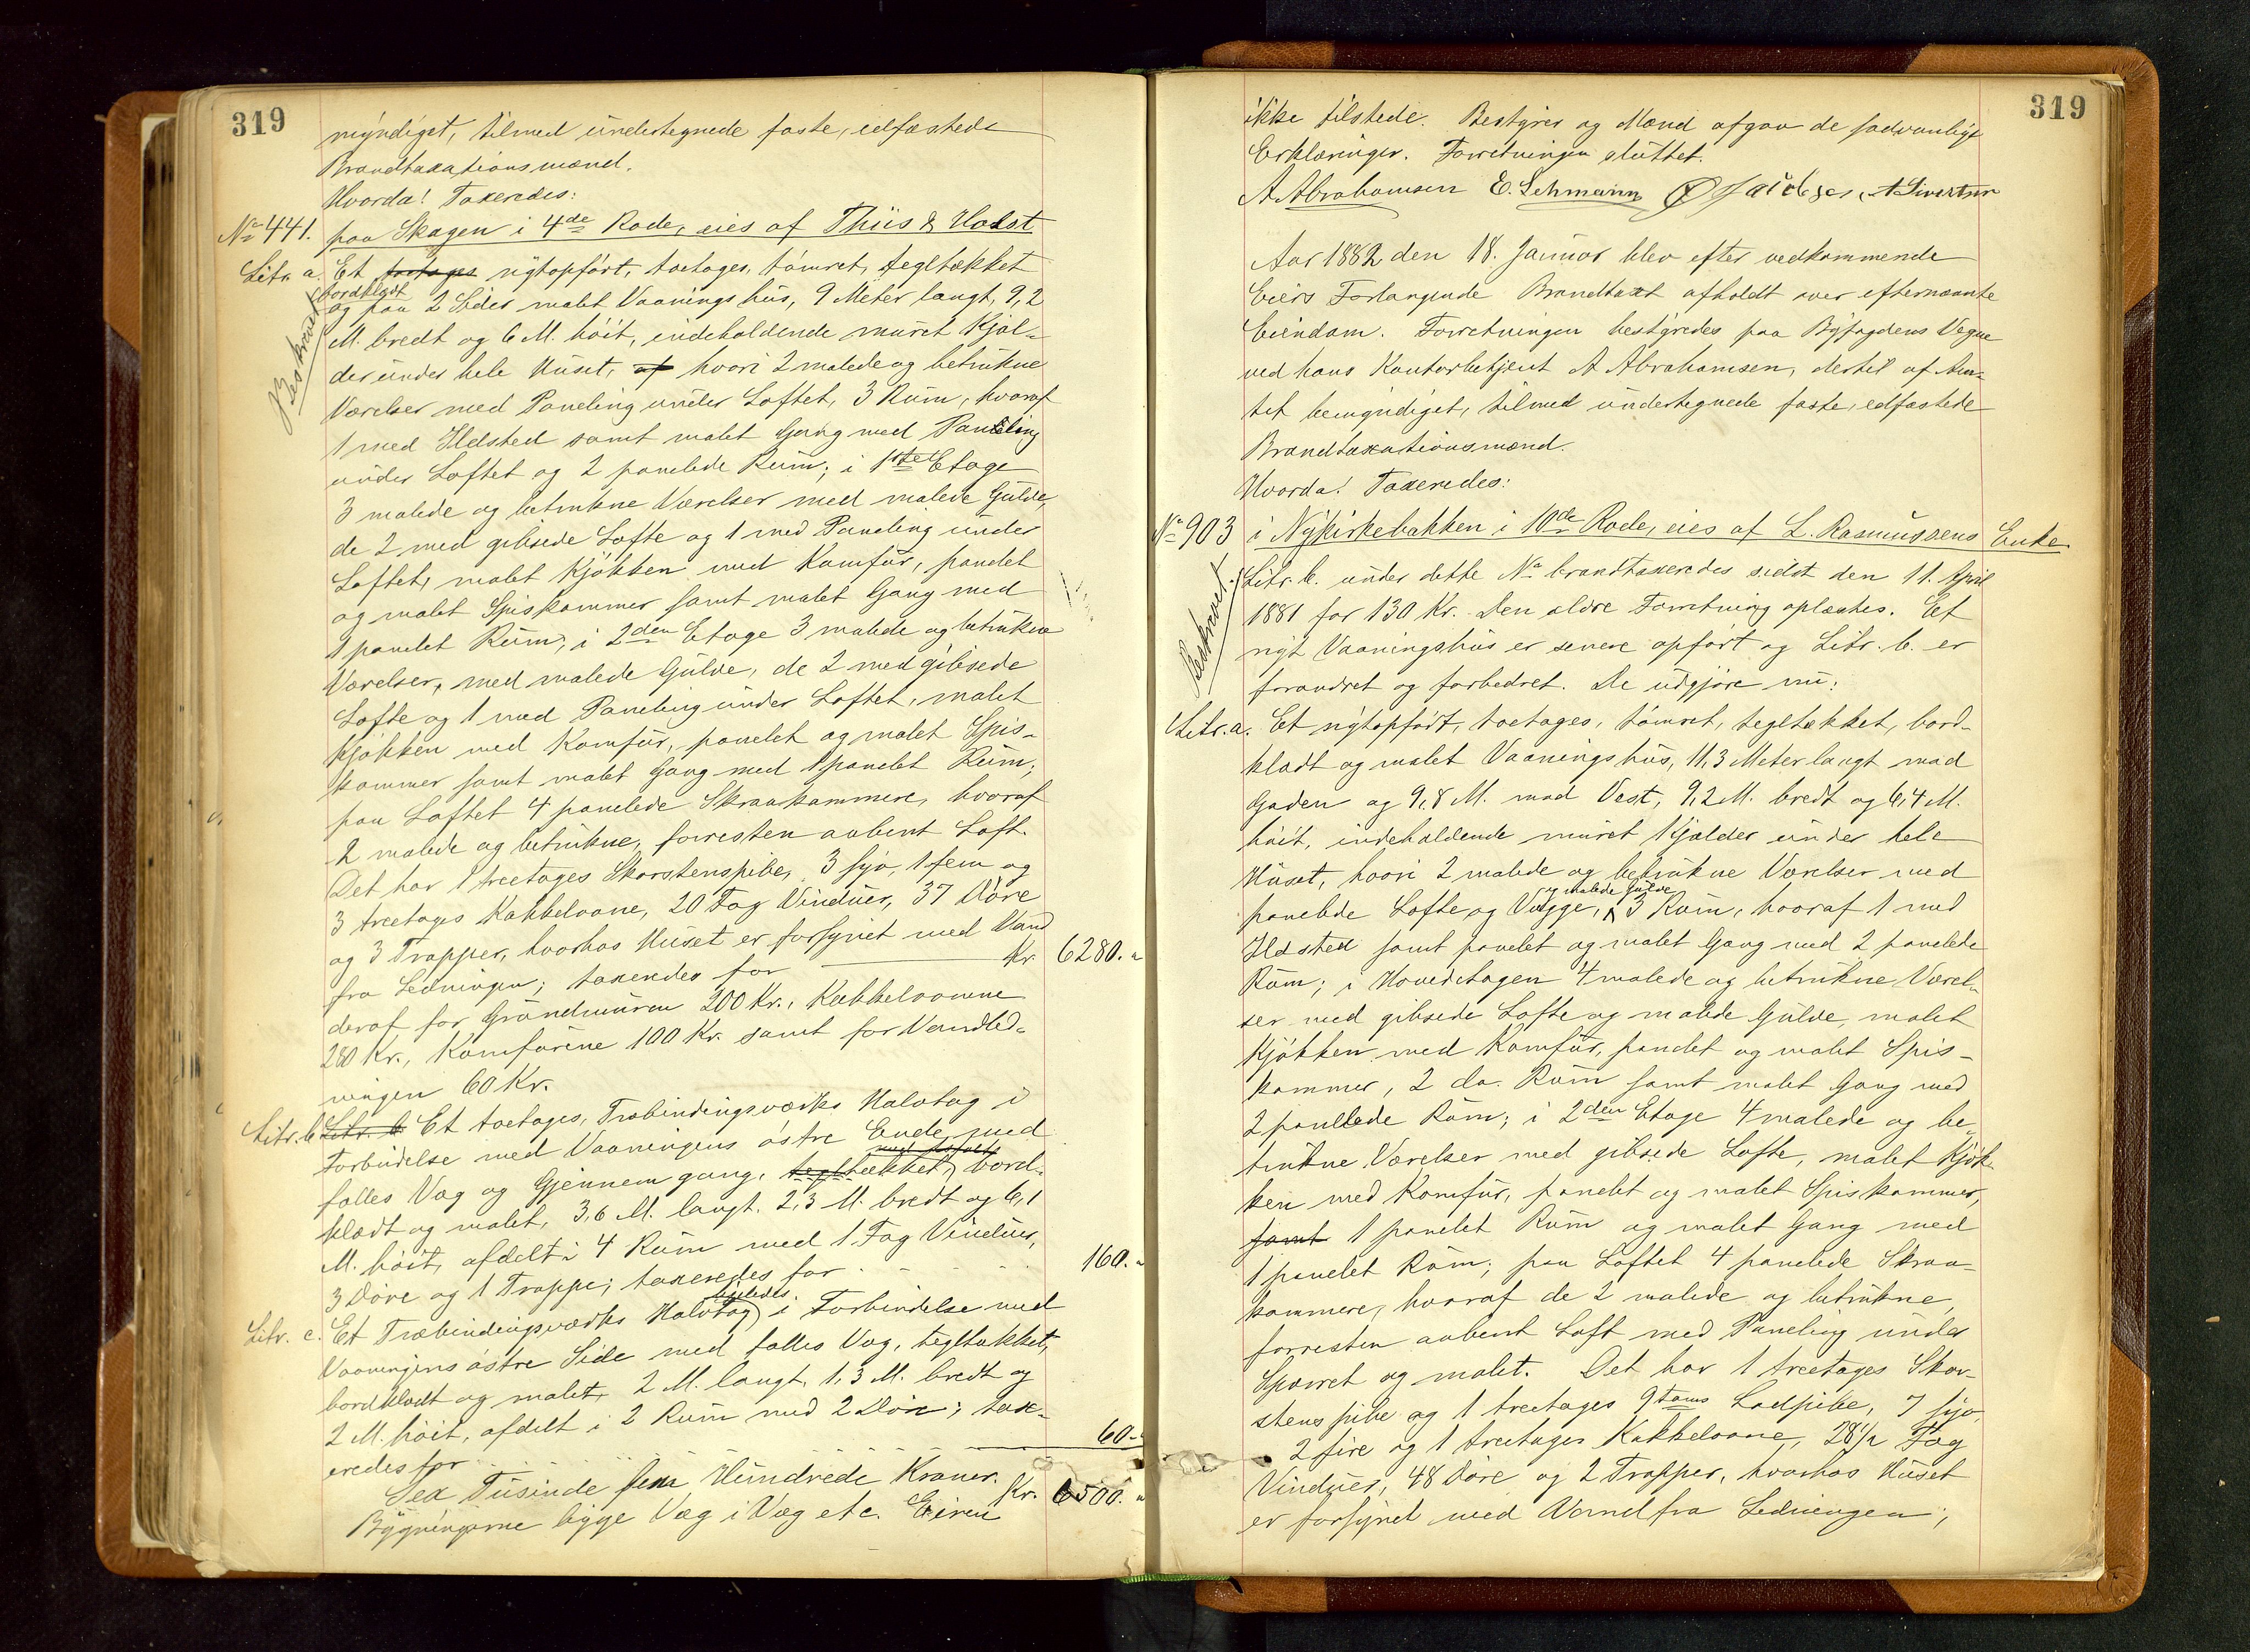 319
myndiget, tilmed undertegnede faste, edfæstede
Brandtaxationsmænd.
Hvorda! Taxeredes:
No 441. paa Skagen i 4de Rode, eies af Thiis & Holst
Litr. a. Et toetages nytopført, toetages, tømret, tegltækket
bordklædt
og paa 2 Sider malet Vaaningshus, 9 Meter langt, 9,2
Beskrevet
M. bredt og 6 M. høit, indeholdende muret Kjæl-
der under hele Huset, af hvori 2 malede og betrukne
Værelser med Paneling under Loftet, 3 Rum, hvoraf
1 med Ildsted samt malet Gang med Paneling
under Loftet og 2 panelede Rum; i 1ste Etage
3 malede og betrukne Værelser med malede Gulve,
de 2 med gibsede Lofte og 1 med Paneling under
Loftet, malet Kjøkken med Komfur, panelet
og malet Spiskammer samt malet Gang med
1 panelet Rum; i 2den Etage 3 malede og betrukne
Værelser, med malede Gulve, de 2 med gibsede
Lofte og 1 med Paneling under Loftet, malet
Kjøkken med Komfur, panelet og malet Spis-
kammer samt malet Gang med 1 panelet Rum;
paa Loftet 4 panelede Skraakammere, hvoraf
2 malede og betrukne, forresten aabent Loft.
Det har 1 treetages Skorstenspibe, 3 syv, 1 fem og
3 treetages Kakkelovne, 20 Fag Vinduer, 37 Døre
og 3 Trapper, hvorhos Huset er forsynet med Vand
fra Ledningen; taxeredes for Kr. 6280. "
deraf for Grundmuren 200 Kr., Kakkelovnene
280 Kr., Komfurene 100 Kr. samt for Vandled-
ningen 60 Kr.
Litr. b Litr. b Et toetages, Træbindingsværks Halvtag i
Forbindelse med Vaaningens østre Ende med
med Asfalt
fælles Væg og Gjennemgang, tegltækket, bord-
klædt og malet, 3,6 M. langt, 2,3 M. bredt og 6,1
M. høit, afdelt i 4 Rum med 1 Fag Vinduer,
3 Døre og 1 Trappe; taxeredes for 160. "
Litr. c. Et Træbindingsværks Halvtag i Forbindelse med
Vaaningens østre Side med fælles Væg, tegltækket,
bordklædt og malet, 2 M. langt, 1,3 M. bredt og
2 M. høit, afdelt i 2 Rum med 2 Døre; tax-
eredes for 60. "
Sex Tusinde fem Hundrede Kroner. Kr. 6500. "
Bygningerne ligge Væg i Væg etc. Eieren
319
ikke tilstede. Bestyrer og Mænd afgav de sædvanlige
Erklæringer. Forretningen sluttet.
A Abrahamsen E. Lehmann A Sivertsen
Aar 1882 den 18. Januar blev efter vedkommende
Eiers Forlangende Brandtaxt afholdt over efternævnte
Eiendom. Forretningen bestyredes paa Byfogdens Vegne
ved hans Kontorbetjent A Abrahamsen, dertil af Am-
tet bemyndiget, tilmed undertegnede faste, edfæstede
Brandtaxationsmænd.
Hvorda! Taxeredes:
No 903 i Nykirkebakken i 10de Rode, eies af L. Rasmussens Enke.
Beskrevet.
Litr. b. under dette No brandtaxeredes sidst den 11. April
1881 for 130 Kr. Den ældre Forretning oplæstes. Et
nyt Vaaningshus er senere opført og Litr. b. er
forandret og forbedret. De udgjøre nu:
Litr. a. Et nytopført, toetages, tømret, tegltækket, bord-
klædt og malet Vaaningshus, 11,3 Meter langt mod
Gaden og 9,8 M. mod Vest, 9,2 M. bredt og 6,4 M.
høit, indeholdende muret Kjælder under hele
Huset, hvori 2 malede og betrukne Værelser med
og malede Gulve
panelede Lofte og Vægge, 3 Rum, hvoraf 1 med
Ildsted samt panelet og malet Gang med 2 panelede
Rum; i Hovedetagen 4 malede og betrukne Værel-
ser med gibsede Lofte og malede Gulve, malet
Kjøkken med Komfur, panelet og malet Spis-
kammer, 2 do. Rum samt malet Gang med
2 panelede Rum; i 2den Etage 4 malede og be-
trukne Værelser med gibsede Lofte, malet Kjøk-
ken med Komfur, panelet og malet Spiskammer,
samt 1 panelet Rum og malet Gang med
1 panelet Rum; paa Loftet 4 panelede Skraa-
kammere, hvoraf de 2 malede og betrukne,
forresten aabent Loft med Paneling under
Sparret og malet. Det har 1 treetages Skor-
stenspibe og 1 treetages 9toms Lodpibe, 7 syv,
2 fire og 1 treetages Kakkelovne, 28 1/2 Fag
Vinduer, 48 Døre og 2 Trapper, hvorhos Huset
er forsynet med Vand fra Ledningen;